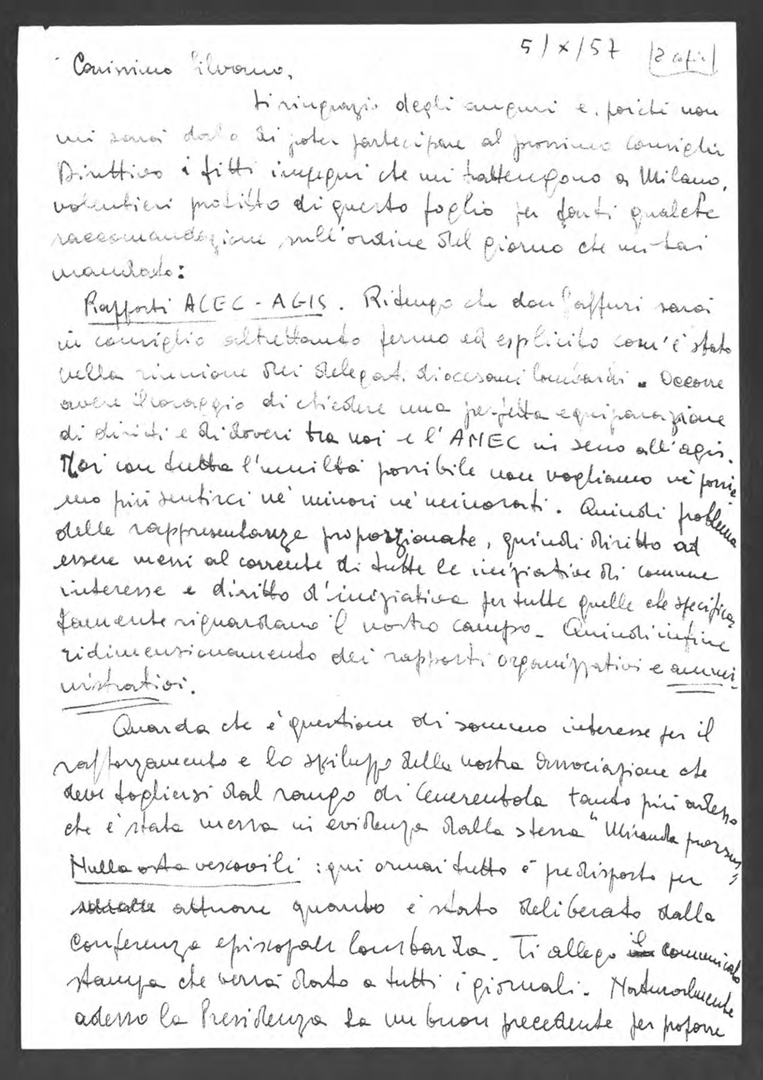 5/X/57 [2 copie]
Carissimo Silvano,
ti ringrazio degli auguri e, poiché non
mi sarà dato di poter partecipare al prossimo Consiglio
Direttivo i fitti impegni che mi trattengono a Milano,
volentieri profitto di questo foglio per farti qualche
raccomandazione sull'ordine del giorno che mi hai
mandato:
Rapporti ACEC - AGIS. Ritengo che don Gaffuri sarà
in consiglio altrettanto fermo ed esplicito com'è stato
nella riunione dei delegati diocesani lombardi. Occorre
avere il coraggio di chiedere una perfetta equiparazione
di diritti e di doveri tra noi e l'ANEC in seno all'agis.
Noi con tutta l'umiltà possibile non vogliamo né possia
mo più sentirci né minori né minorati. Quindi problema
delle rappresentanze proporzionate, quindi diritto ad
essere messi al corrente di tutte le iniziative di comune
interesse e diritto d'iniziativa per tutte quelle che specifica
tamente riguardano il nostro campo. Quindi infine
ridimensionamento dei rapporti organizzativi e ammi-
nistrativi.
Guarda che è questione di sommo interesse per il
rafforzamento e lo sviluppo della nostra Associazione che
deve togliersi dal rango di Cenerentola tanto più adesso
che è stata messa in evidenza dalla stessa "Miranda prorsus"
Nulla osta vescovili: qui ormai tutto è predisposto per
attuare quanto è stato deliberato dalla
Conferenza episcopale lombarda. Ti allego il comunicato
stampa che verrà dato a tutti i giornali. Naturalmente
adesso la Presidenza ha un buon precedente per proporre